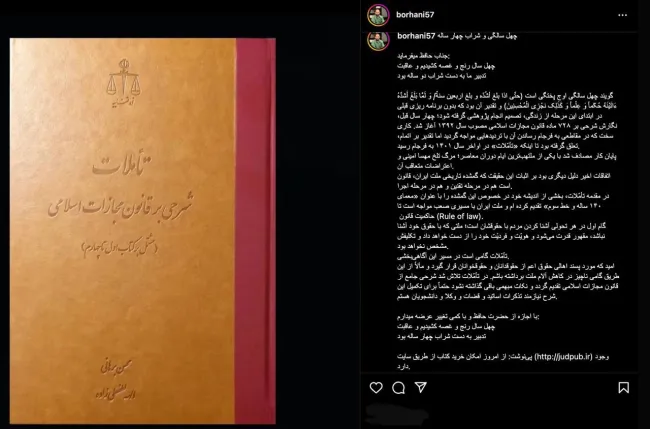 borhani57
borhani57 چهل سالگی و شراب چهار ساله
جناب حافظ میفرماید:
چهل سال رنج و غصه کشیدیم و عاقبت
تدبیر ما به دست شراب دو ساله بود
گویند چهل سالگی اوج پختگی است (حتّی اذا بلغ اشدّه و بلغ اربعین سنة/ وَ لَمَّا بَلَغَ أَشُدَّهُ
ءَاتَيْنَٰهُ حُكْماً وَ عِلْماً وَ كَذَٰلِكَ نَجْزِى ٱلْمُحْسِنِينَ) و تقدیر آن بود که بدون برنامه ریزی قبلی
در ابتدای این مرحله از زندگی، تصمیم انجام پژوهشی گرفته شود؛ چهار سال قبل،
نگارش شرحی بر ۷۲۸ ماده قانون مجازات اسلامی مصوب سال ۱۳۹۲ آغاز شد. کاری
سخت که در مقاطعی به فرجام رساندن آن با تردیدهایی مواجه گردید اما تقدیر بر اتمام،
تعلق گرفته بود تا اینکه «تأملات» در اواخر سال ۱۴۰۱ به فرجام رسید.
پایان کار مصادف شد با یکی از ملتهب‌ترین ایام دوران معاصر؛ مرگ تلخ مهسا امینی و
اعتراضات متعاقب آن.
اتفاقات اخیر دلیل دیگری بود بر اثبات این حقیقت که گمشده تاریخی ملت ایران، قانون
است هم در مرحله تقنین و هم در مرحله اجرا.
در مقدمه تأملات، بخشی از اندیشه خود در خصوص این گمشده را با عنوان «معمای
۱۴۰ ساله و خط سوم» تقدیم کرده ام و ملت ایران با مسیری صعب مواجه است تا
حاکمیت قانون (Rule of law).
گام اول در هر تحولی آشنا کردن مردم با حقوقشان است؛ ملتی که با حقوق خود آشنا
نباشد، مقهور قدرت می‌شود و هویّت و فردیّت خود را از دست خواهد داد و تکلیفش
مشخص نخواهد بود.
تأملات گامی است در مسیر این آگاهی‌بخشی.
امید که مورد پسند اهالی حقوق اعم از حقوقدانان و حقوقخوانان قرار گیرد و مآلاً از این
طریق گامی ناچیز در کاهش آلام ملت برداشته باشم. در تأملات تلاش شد شرحی جامع از
قانون مجازات اسلامی تقدیم گردد و نکات مبهمی باقی گذاشته نشود حتماً برای تکمیل این
شرح نیازمند تذکرات اساتید و قضات و وکلا و دانشجویان هستم.
با اجازه از حضرت حافظ و با کمی تغییر عرضه میدارم:
چهل سال رنج و غصه کشیدیم و عاقبت
تدبیر ما به دست شراب چهار ساله بود
پی‌نوشت: از امروز امکان خرید کتاب از طریق سایت (http://judpub.ir) وجود
دارد.
تأملات
شرحی بر قانون مجازات اسلامی
(مشتمل بر کتاب اول تا چهارم)
محسن برهانی